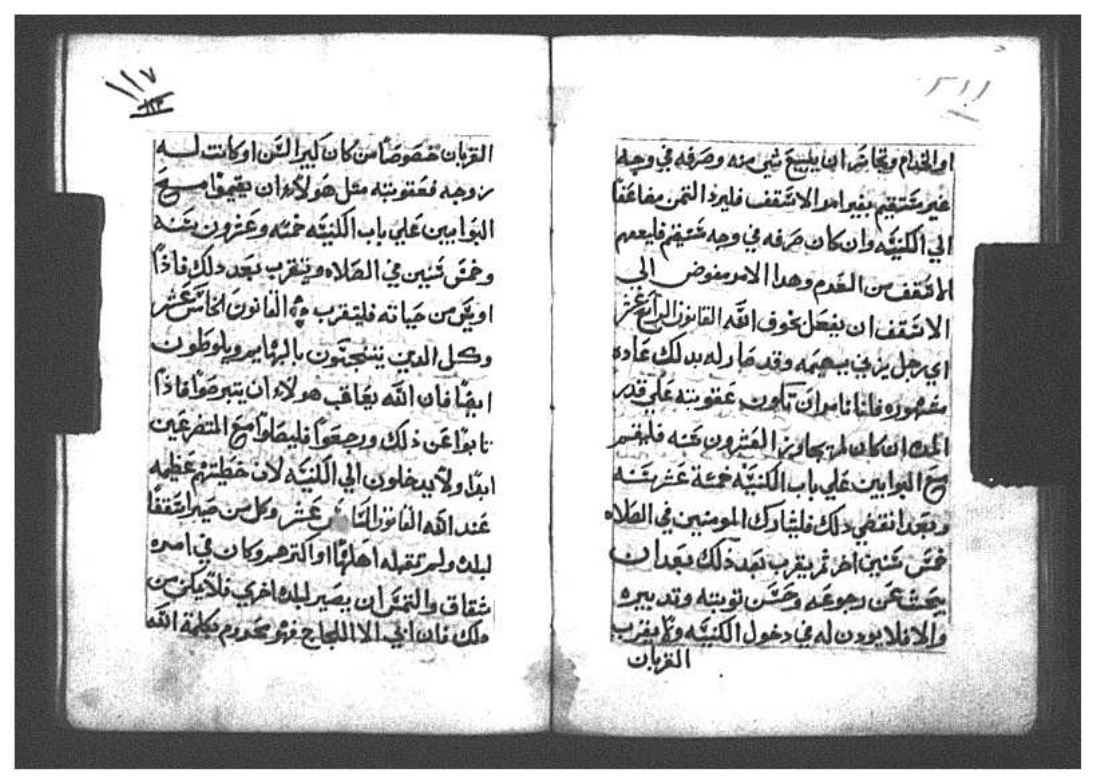 او الخدام وتجاسر ان يبيع شي منه وصرفه في وجه
غير مستقيم بغير امر الاسقف فليرد الثمن مضاعفا
الي الكنيسه وان كان صرفه في وجه مستقيم فليعمهم
الاسقف من الخدم وهدا الامر مفوض الى
الاسقف ان يفعل بخوف الله القانون الرابع عشر
اي رجل يزني ببهيمه وقد صار له بدلك عاده
مشهوره فاننا نامر ان تكون عقوبته على قدر
المده ان كان لم يجاوز العشرون سنه فليقم
مع البوابين علي باب الكنيسه خمسة عشر سنه
وبعد انقضي دلك فليشارك المومنين في الصلاه
خمس سنين اخر ثم يقرب بعد ذلك بعد ان
يبحث عن رجوعه وحسن توبته وتدبيره
والا فلا يودن له في دخول الكنيسه ولا يقرب
القربان
١١٧
١٢٣
القربان خصوصا من كان كبير السن او كانت له
زوجه فعقوبته مثل هولاء ان يقيموا مع
البوابين علي باب الكنيسه خمسه وعشرون سنه
وخمس سنين في الصلاه ويتقرب بعد دلك فاذا
اويس من حياته فليتقرب القانون الخامس عشر
وكل الدين ينتجسون بالبهايم ويلوطون
ايضا فان الله يعاقب هولاء ان يتبرصوا فاذا
تابوا عن ذلك ورجعوا فليصلوا مع المتضرعين
ابدا ولا يدخلون الي الكنيسه لان خطيتهم عظيمه
عند الله القانون السادس عشر وكل من صير اسقفا
لبلد ولم تقبله اهلها او اكترهم وكان في امره
شقاق والتمس ان يصير لبلد اخري فلا يمكن من
دلك فان ابي الا اللجاج فهو محروم بكلمة الله